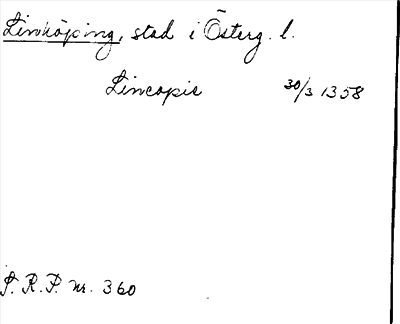 Linköping, stad i Österg. l.
Lincopie 30/3 1358
P. R. P. nr. 360